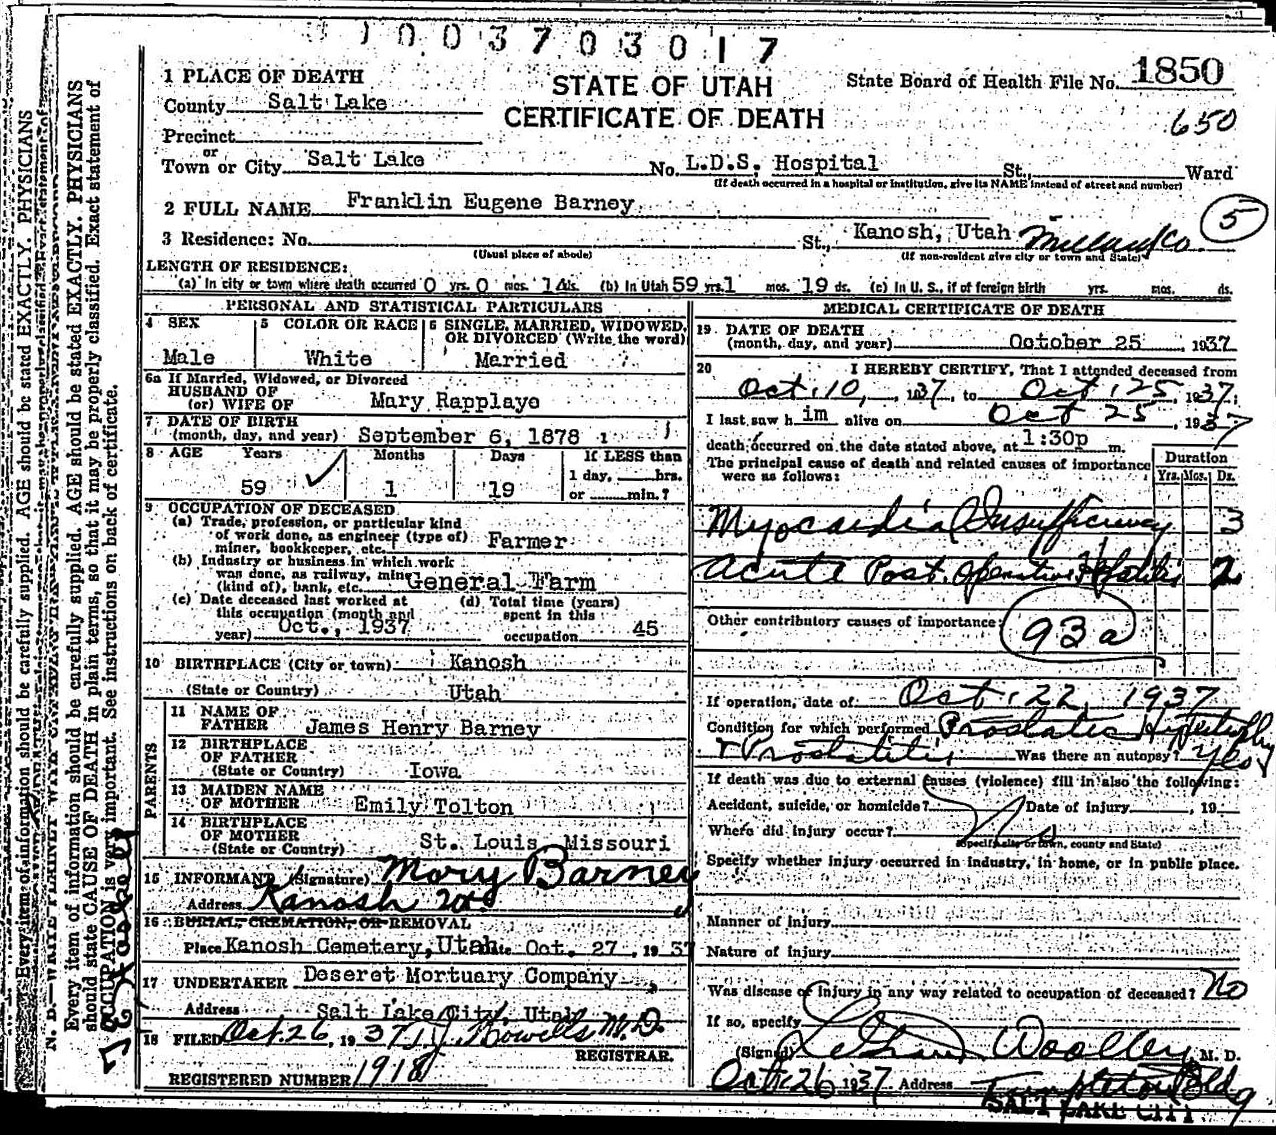 1003703017
STATE OF UTAH
CERTIFICATE OF DEATH
State Board of Health File No. 1850
650
5
1 PLACE OF DEATH
County Salt Lake
Precinct
or
Town or City Salt Lake No. L.D.S. Hospital St., Ward
(If death occurred in a hospital or institution, give its NAME instead of street and number)
2 FULL NAME Franklin Eugene Barney
3 Residence: No. St., Kanosh, Utah Millard Co
(Usual place of abode) (If non-resident give city or town and State)
LENGTH OF RESIDENCE:
(a) In city or town where death occurred 0 yrs. 0 mos. 14 ds. (b) In Utah 59 yrs. 1 mos. 19 ds. (c) In U. S., if of foreign birth yrs. mos. ds.
PERSONAL AND STATISTICAL PARTICULARS
4 SEX 5 COLOR OR RACE 6 SINGLE, MARRIED, WIDOWED, OR DIVORCED (Write the word)
Male White Married
6a If Married, Widowed, or Divorced
HUSBAND OF
(or) WIFE OF Mary Rapplaye
7 DATE OF BIRTH
(month, day, and year) September 6, 1878
8 AGE Years Months Days If LESS than
1 day, hrs.
59 1 19 or min.?
9 OCCUPATION OF DECEASED
(a) Trade, profession, or particular kind
of work done, as engineer (type of)
miner, bookkeeper, etc. Farmer
(b) Industry or business in which work
was done, as railway, mine
(kind of), bank, etc. General Farm
(c) Date deceased last worked at
this occupation (month and
year) Oct., 1937
(d) Total time (years)
spent in this
occupation 45
10 BIRTHPLACE (City or town) Kanosh
(State or Country) Utah
PARENTS
11 NAME OF
FATHER James Henry Barney
12 BIRTHPLACE
OF FATHER
(State or Country) Iowa
13 MAIDEN NAME
OF MOTHER Emily Tolton
14 BIRTHPLACE
OF MOTHER
(State or Country) St. Louis, Missouri
15 INFORMANT (Signature) Mary Barney
Address Kanosh Utah
16 BURIAL, CREMATION, OR REMOVAL
Place Kanosh Cemetery, Utah Date Oct. 27, 1937
17 UNDERTAKER Deseret Mortuary Company
Address Salt Lake City, Utah
18 FILED Oct. 26, 1937 T.J. Howells M.D.
REGISTRAR.
REGISTERED NUMBER 1918
MEDICAL CERTIFICATE OF DEATH
19 DATE OF DEATH
(month, day, and year) October 25, 1937
20 I HEREBY CERTIFY, That I attended deceased from
Oct. 10, 1937, to Oct. 25, 1937;
I last saw h im alive on Oct 25, 1937
death occurred on the date stated above, at 1:30p m.
The principal cause of death and related causes of importance
were as follows:
Duration
Yrs. Mos. Ds.
Myocardial Insufficiency 3
Acute Post. Operative 2
Other contributory causes of importance:
93a
If operation, date of Oct. 22, 1937
Condition for which performed Prostatic Hypertrophy
& Prostatitis Was there an autopsy? Yes
If death was due to external causes (violence) fill in also the following:
Accident, suicide, or homicide? Date of injury , 19
No
Where did injury occur?
(Specify city or town, county and State)
Specify whether injury occurred in industry, in home, or in public place.
Manner of injury
Nature of injury
Was disease or injury in any way related to occupation of deceased? No
If so, specify
(Signed) Woolley, M. D.
Oct. 26 1937 Address Templeton Bldg
SALT LAKE CITY
Every item of information should be carefully supplied. AGE should be stated EXACTLY. PHYSICIANS
should state CAUSE OF DEATH in plain terms, so that it may be properly classified. Exact statement of
OCCUPATION is very important. See instructions on back of certificate.